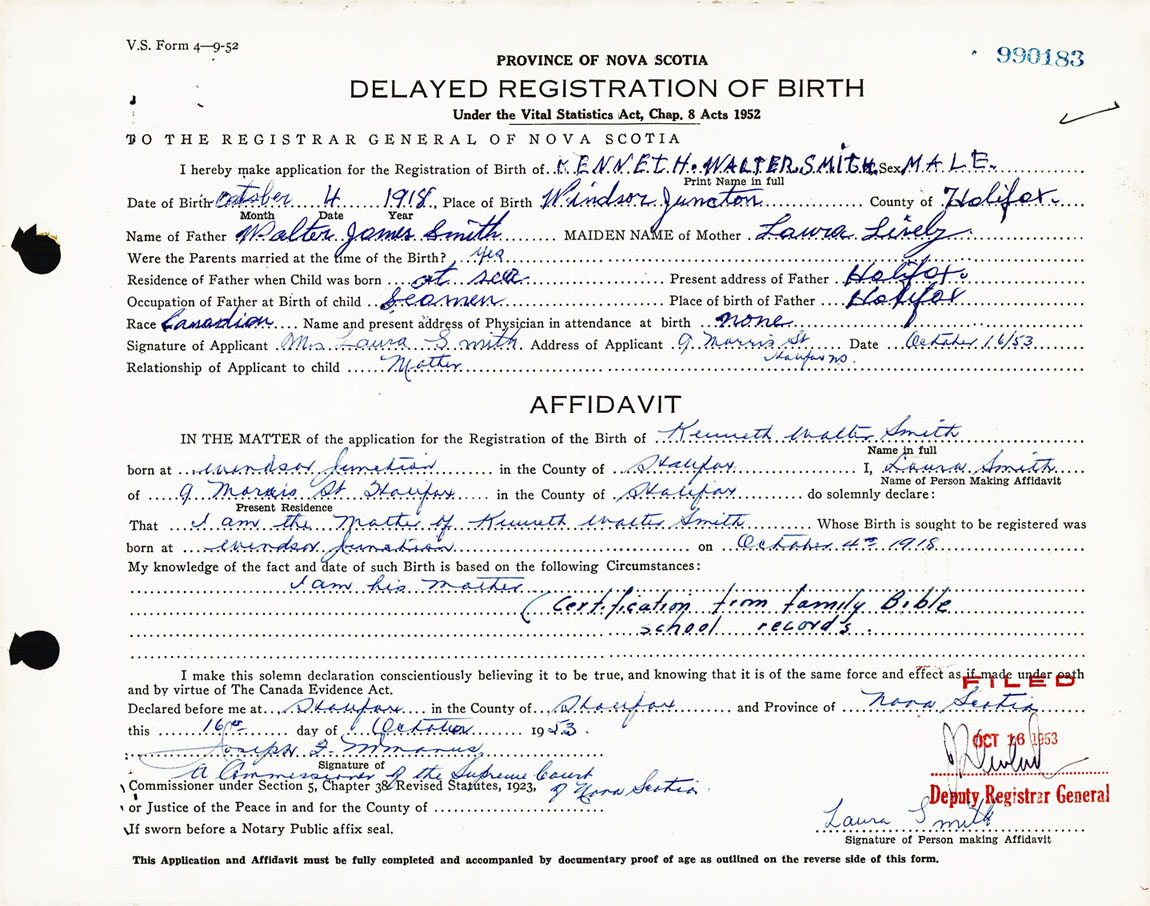 V.S. Form 4—9-52
990183
PROVINCE OF NOVA SCOTIA
DELAYED REGISTRATION OF BIRTH
Under the Vital Statistics Act, Chap. 8 Acts 1952
TO THE REGISTRAR GENERAL OF NOVA SCOTIA
I hereby make application for the Registration of Birth of KENNETH WALTER SMITH Sex MALE
Print Name in full
Date of Birth October 4 1918, Place of Birth Windsor Junction County of Halifax
Month Date Year
Name of Father Walter James Smith MAIDEN NAME of Mother Laura Lively
Were the Parents married at the time of the Birth? yes
Residence of Father when Child was born at sea Present address of Father Halifax
Occupation of Father at Birth of child Seamen Place of birth of Father Halifax
Race Canadian Name and present address of Physician in attendance at birth none
Signature of Applicant Mrs Laura Smith Address of Applicant 9 Morris St Date October 16/53
Halifax NS.
Relationship of Applicant to child Mother
AFFIDAVIT
IN THE MATTER of the application for the Registration of the Birth of Kenneth Walter Smith
Name in full
born at Windsor Junction in the County of Halifax I, Laura Smith
Name of Person Making Affidavit
of 9 Morris St Halifax in the County of Halifax do solemnly declare:
Present Residence
That I am the Mother of Kenneth Walter Smith Whose Birth is sought to be registered was
born at Windsor Junction on October 4th 1918
My knowledge of the fact and date of such Birth is based on the following Circumstances:
I am his Mother
(Certification from family Bible
school records.
I make this solemn declaration conscientiously believing it to be true, and knowing that it is of the same force and effect as if made under oath
FILED
and by virtue of The Canada Evidence Act.
Declared before me at Halifax in the County of Halifax and Province of Nova Scotia
this 16th day of October 1953.
OCT 16 1953
Joseph
Signature of
A Commissioner of the Supreme Court
of Nova Scotia
Commissioner under Section 5, Chapter 38 Revised Statutes, 1923,
Deputy Registrar General
or Justice of the Peace in and for the County of
Laura Smith
If sworn before a Notary Public affix seal.
Signature of Person making Affidavit
This Application and Affidavit must be fully completed and accompanied by documentary proof of age as outlined on the reverse side of this form.